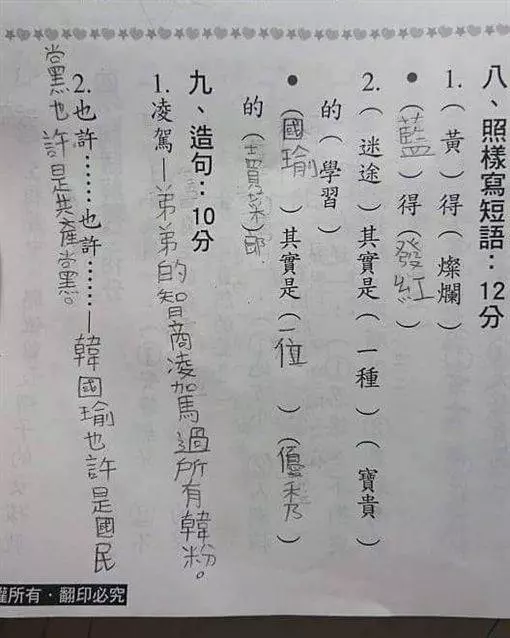 八、照樣寫短語：12分
1.（黃）得（燦爛）
●（藍）得（發紅）
2.（迷途）其實是（一種）（寶貴）
的（學習）
●（國瑜）其實是（一位）（優秀）
的（賣菜郎）
九、造句：10分
1.凌駕—弟弟的智商凌駕過所有韓粉。
2.也許……也許……—韓國瑜也許是國民
黨也許是共產黨。
權所有・翻印必究